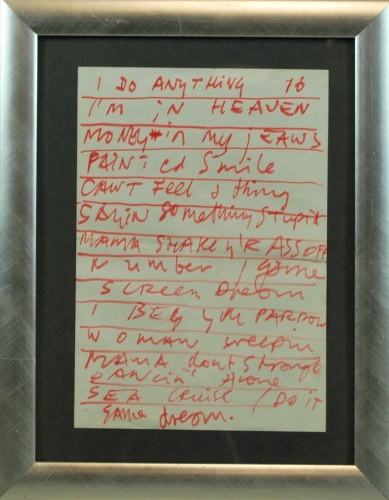 I DO ANYTHING 16
I'M IN HEAVEN
MONEY in my JEANS
PAINTED Smile
CAN'T Feel a thing
SAYIN SOMETHING STUPID
MAMA SHAKE YR ASS OFF
Number / Game
SCREEN DREAM
I BEG YOUR PARDON
WOMAN weepin
MAMA dont Struggle
DANCIN' Alone
SEA Cruise / DO IT
Same dream.